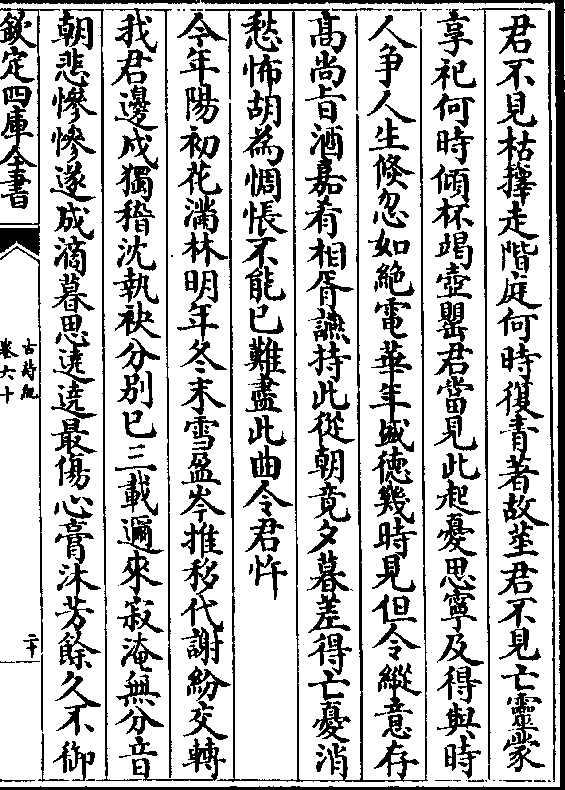 君不見枯籜走階庭何時復青著故莖君不見亡靈蒙
享祀何時傾杯竭壺罌君當見此起憂思寧及得與時
人爭人生倐忽如絶電華年盛徳幾時見但令縱意存
髙尚旨酒嘉肴相胥讌持此從朝竟夕暮差得亡憂消
愁怖胡為惆悵不能已難盡此曲令君忤
今年陽初花滿林明年冬末雪盈岑推移代謝紛交轉
我君邊戍獨稽沈執袂分别已三載邇來寂淹無分音
朝悲慘慘遂成滴暮思遶遶最傷心膏沐芳餘久不御
欽定四庫全書
古詩紀
卷六十
二十